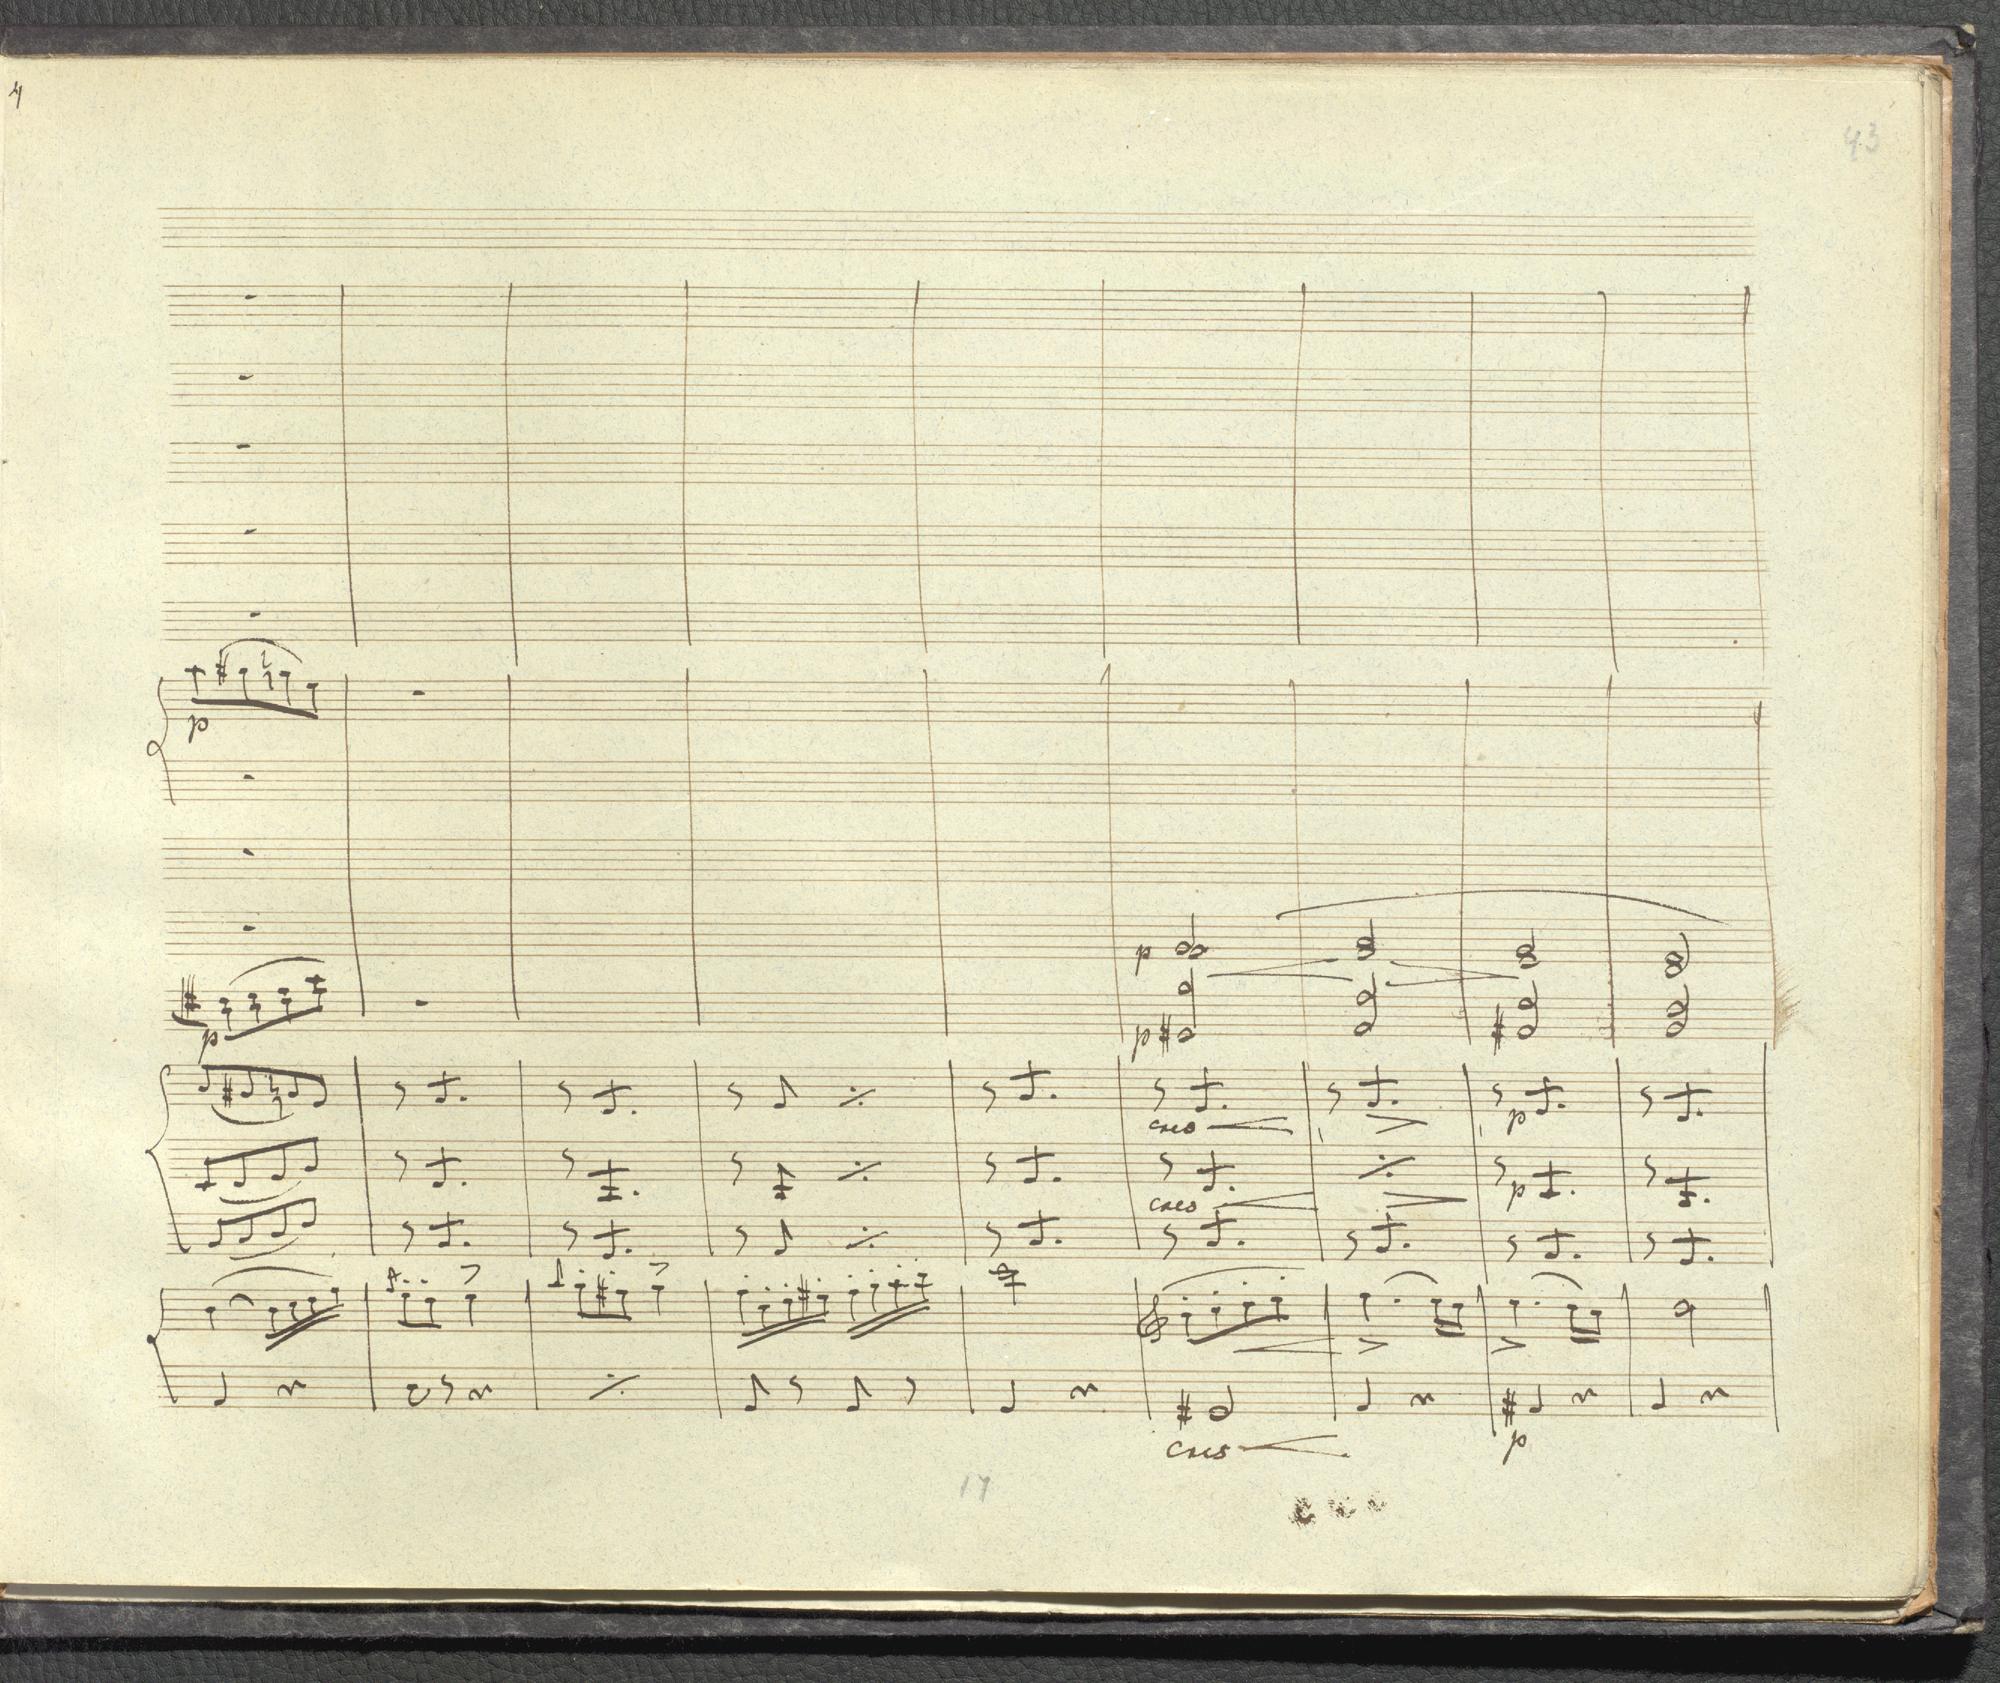 43
p
p
p
p
cres
p
cres
p
cres
p
17